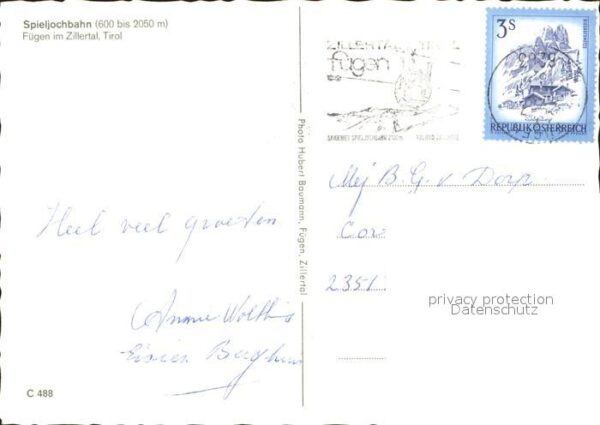 Spieljochbahn (600 bis 2050 m)
Fügen im Zillertal, Tirol
Heel veel groeten
Annie
C 488
Photo Hubert Baumann, Fügen, Zillertal
ZILLERTAL
fügen
3 S
REPUBLIK ÖSTERREICH
Mej B. G. v. Dorp
Cor
2351
privacy protection
Datenschutz